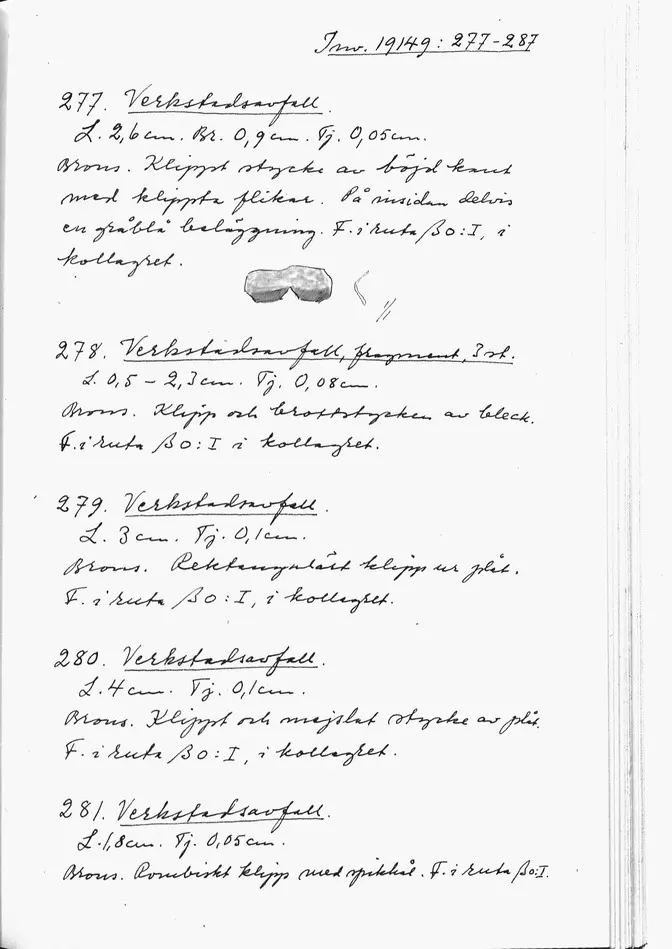 Inv. 19149: 277-287
277. Verkstadsavfall.
L. 2,6 cm. Br. 0,9 cm. Tj. 0,05 cm.
Brons. Klippt stycke av böjd kant
med klippta flikar. På insidan delvis
en gråblå beläggning. F. i ruta β0:I, i
kollagret.
1/1
278. Verkstadsavfall, fragment, 3 st.
L. 0,5 - 2,3 cm. Tj. 0,08 cm.
Brons. Klipp och brottstycken av bleck.
F. i ruta β0:I i kollagret.
279. Verkstadsavfall.
L. 3 cm. Tj. 0,1 cm.
Brons. Rektangulärt klipp ur plåt.
F. i ruta β0:I, i kollagret.
280. Verkstadsavfall.
L. 4 cm. Tj. 0,1 cm.
Brons. Klippt och mejslat stycke av plåt.
F. i ruta β0:I, i kollagret.
281. Verkstadsavfall.
L. 1,8 cm. Tj. 0,05 cm.
Brons. Rombiskt klipp med spikhål. F. i ruta β0:I.